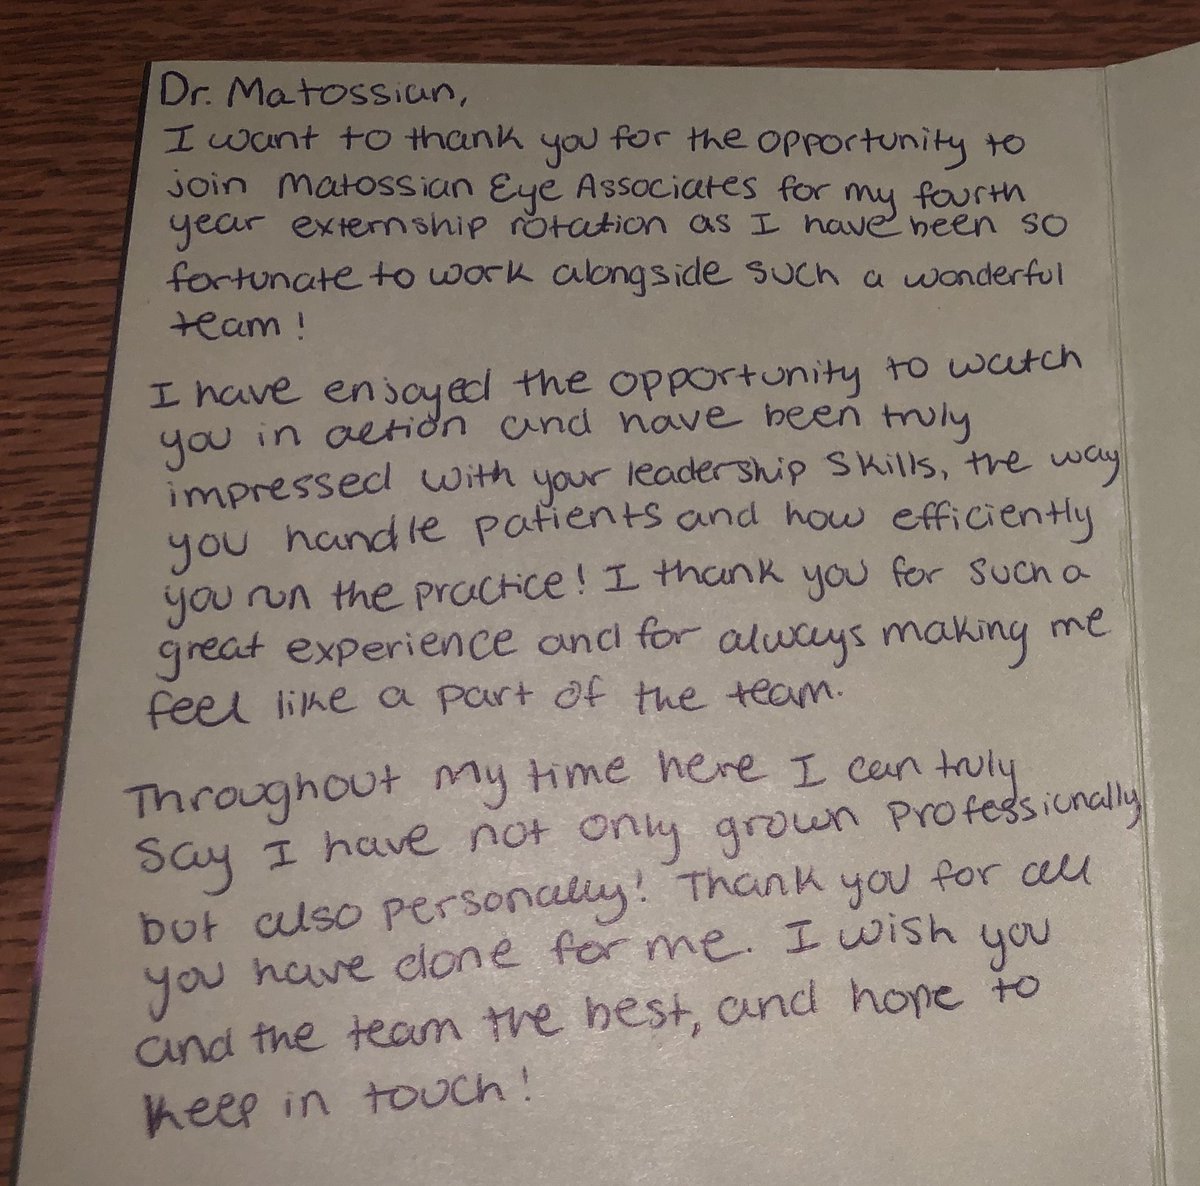 Dr. Matossian,
I want to thank you for the opportunity to
join Matossian Eye Associates for my fourth
year externship rotation as I have been so
fortunate to work alongside such a wonderful
team!
I have enjoyed the opportunity to watch
you in action and have been truly
impressed with your leadership skills, the way
you handle patients and how efficiently
you run the practice! I thank you for such a
great experience and for always making me
feel like a part of the team.
Throughout my time here I can truly
say I have not only grown professionally
but also personally! Thank you for all
you have done for me. I wish you
and the team the best, and hope to
keep in touch!